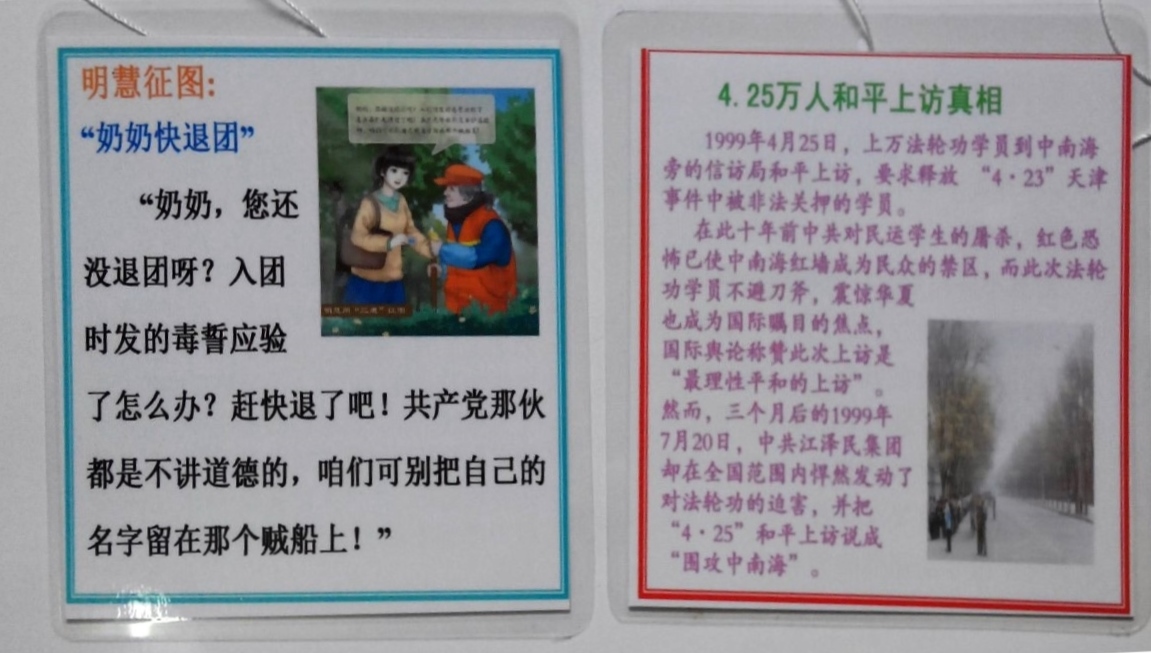 明慧征图:
“奶奶快退团”
“奶奶，您还
没退团呀？入团
时发的毒誓应验
了怎么办？赶快退了吧！共产党那伙
都是不讲道德的，咱们可别把自己的
名字留在那个贼船上！”
4.25万人和平上访真相
1999年4月25日，上万法轮功学员到中南海
旁的信访局和平上访，要求释放 “4·23”天津
事件中被非法关押的学员。
在此十年前中共对民运学生的屠杀，红色恐
怖已使中南海红墙成为民众的禁区，而此次法轮
功学员不避刀斧，震惊华夏
也成为国际瞩目的焦点，
国际舆论称赞此次上访是
“最理性平和的上访”。
然而，三个月后的1999年
7月20日，中共江泽民集团
却在全国范围内悍然发动了
对法轮功的迫害，并把
“4·25”和平上访说成
“围攻中南海”。